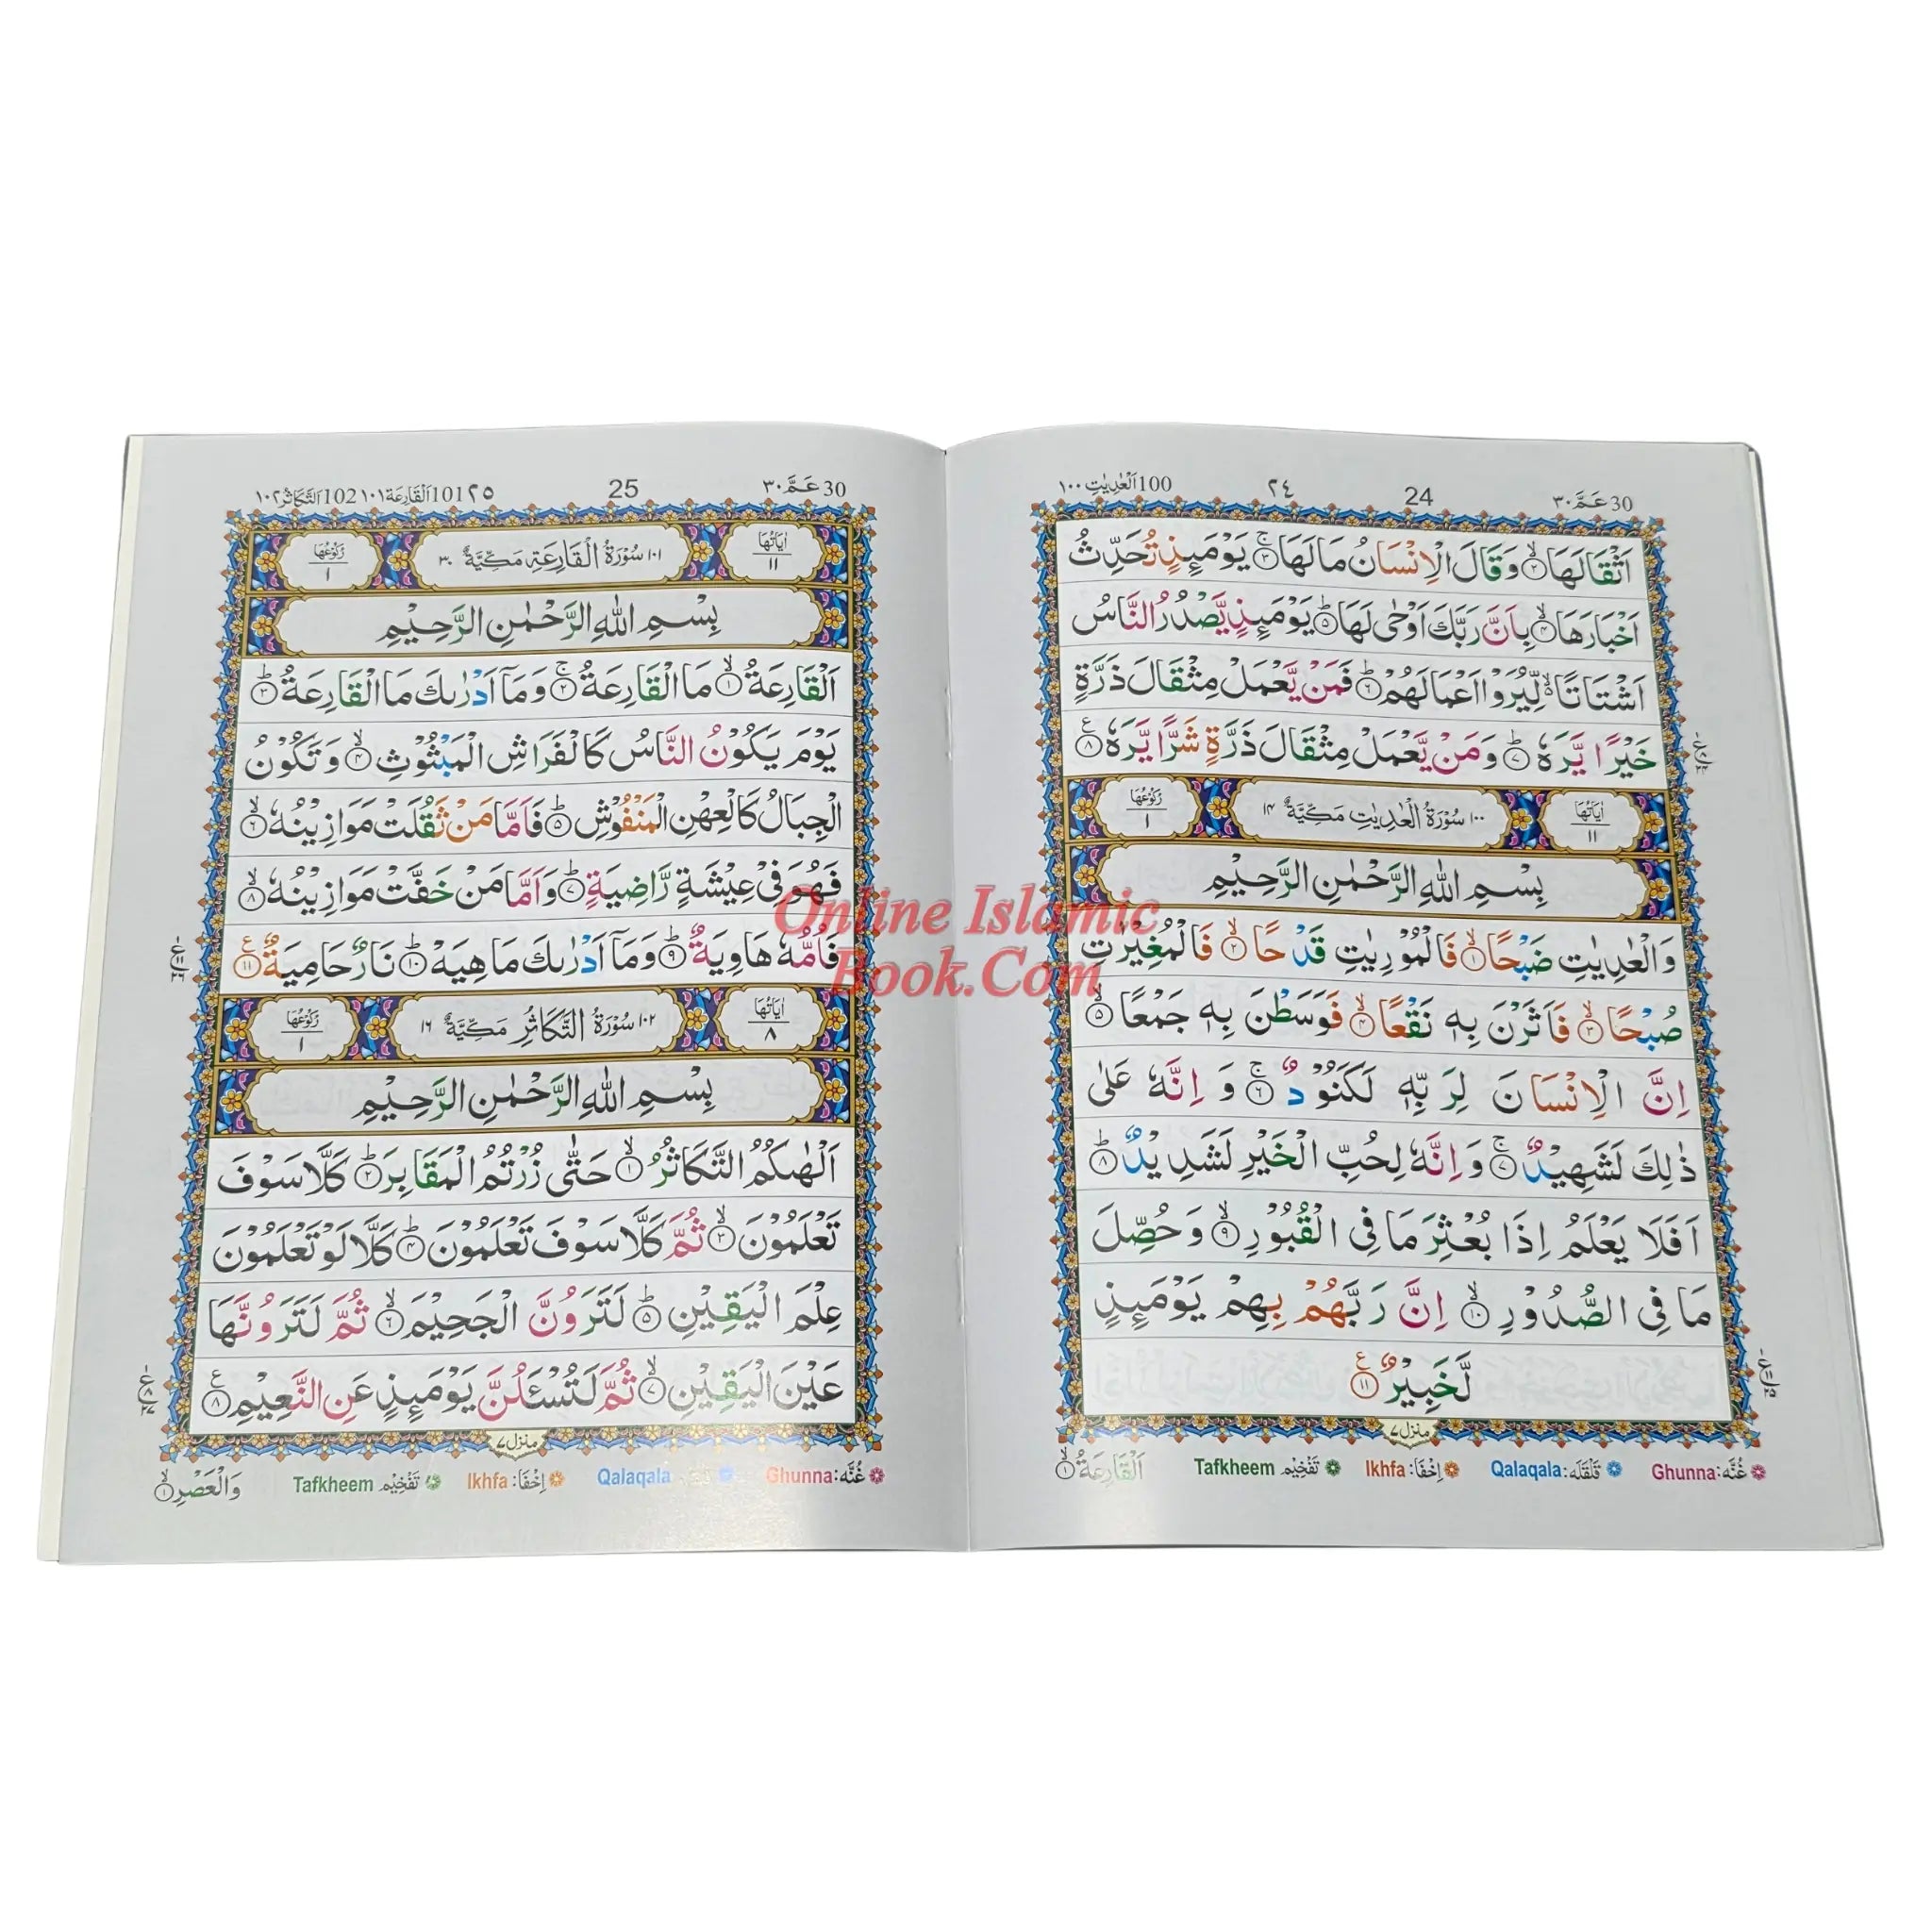 30 عَمَّ ٣٠
24
٢٤
100 اَلْعٰدِيٰتِ ١٠٠
اَثْقَالَهَا ۙ﴿۲﴾ وَقَالَ الْاِنْسَانُ مَا لَهَا ۚ﴿۳﴾ يَوْمَئِذٍ تُحَدِّثُ
اَخْبَارَهَا ۙ﴿۴﴾ بِاَنَّ رَبَّكَ اَوْحٰى لَهَا ؕ﴿۵﴾ يَوْمَئِذٍ يَّصْدُرُ النَّاسُ
اَشْتَاتًا ۙ۬ لِّيُرَوْا اَعْمَالَهُمْ ؕ﴿۶﴾ فَمَنْ يَّعْمَلْ مِثْقَالَ ذَرَّةٍ
خَيْرًا يَّرَهٗ ؕ﴿۷﴾ وَمَنْ يَّعْمَلْ مِثْقَالَ ذَرَّةٍ شَرًّا يَّرَهٗ ﴿۸﴾
اٰيَاتُهَا ١١
١٠٠ سُوْرَةُ الْعٰدِيٰتِ مَكِّيَّةٌ ١٤
رُكُوْعُهَا ١
بِسْمِ اللّٰهِ الرَّحْمٰنِ الرَّحِيْمِ
وَالْعٰدِيٰتِ ضَبْحًا ۙ﴿۱﴾ فَالْمُوْرِيٰتِ قَدْحًا ۙ﴿۲﴾ فَالْمُغِيْرٰتِ
صُبْحًا ۙ﴿۳﴾ فَاَثَرْنَ بِهٖ نَقْعًا ۙ﴿۴﴾ فَوَسَطْنَ بِهٖ جَمْعًا ۙ﴿۵﴾
اِنَّ الْاِنْسَانَ لِرَبِّهٖ لَكَنُوْدٌ ۚ﴿۶﴾ وَ اِنَّهٗ عَلٰى
ذٰلِكَ لَشَهِيْدٌ ۚ﴿۷﴾ وَ اِنَّهٗ لِحُبِّ الْخَيْرِ لَشَدِيْدٌ ؕ﴿۸﴾
اَفَلَا يَعْلَمُ اِذَا بُعْثِرَ مَا فِى الْقُبُوْرِ ۙ﴿۹﴾ وَ حُصِّلَ
مَا فِى الصُّدُوْرِ ۙ﴿۱۰﴾ اِنَّ رَبَّهُمْ بِهِمْ يَوْمَئِذٍ
لَّخَبِيْرٌ ﴿۱۱﴾
منزل ٧
غُنَّه: Ghunna
قَلْقَلَه: Qalaqala
اِخْفَا: Ikhfa
تَفْخِيْم Tafkheem
اَلْقَارِعَةُ ۙ﴿۱﴾
30 عَمَّ ٣٠
25
٢٥
101 اَلْقَارِعَة ١٠١ 102 اَلتَّكَاثُر ١٠٢
اٰيَاتُهَا ١١
١٠١ سُوْرَةُ الْقَارِعَةِ مَكِّيَّةٌ ٣٠
رُكُوْعُهَا ١
بِسْمِ اللّٰهِ الرَّحْمٰنِ الرَّحِيْمِ
اَلْقَارِعَةُ ۙ﴿۱﴾ مَا الْقَارِعَةُ ۚ﴿۲﴾ وَمَاۤ اَدْرٰىكَ مَا الْقَارِعَةُ ؕ﴿۳﴾
يَوْمَ يَكُوْنُ النَّاسُ كَالْفَرَاشِ الْمَبْثُوْثِ ۙ﴿۴﴾ وَتَكُوْنُ
الْجِبَالُ كَالْعِهْنِ الْمَنْفُوْشِ ؕ﴿۵﴾ فَاَمَّا مَنْ ثَقُلَتْ مَوَازِيْنُهٗ ۙ﴿۶﴾
فَهُوَ فِىْ عِيْشَةٍ رَّاضِيَةٍ ؕ﴿۷﴾ وَاَمَّا مَنْ خَفَّتْ مَوَازِيْنُهٗ ۙ﴿۸﴾
فَاُمُّهٗ هَاوِيَةٌ ؕ﴿۹﴾ وَمَاۤ اَدْرٰىكَ مَا هِيَهْ ؕ﴿۱۰﴾ نَارٌ حَامِيَةٌ ﴿۱۱﴾
اٰيَاتُهَا ٨
١٠٢ سُوْرَةُ التَّكَاثُرِ مَكِّيَّةٌ ١٦
رُكُوْعُهَا ١
بِسْمِ اللّٰهِ الرَّحْمٰنِ الرَّحِيْمِ
اَلْهٰىكُمُ التَّكَاثُرُ ۙ﴿۱﴾ حَتّٰى زُرْتُمُ الْمَقَابِرَ ؕ﴿۲﴾ كَلَّا سَوْفَ
تَعْلَمُوْنَ ۙ﴿۳﴾ ثُمَّ كَلَّا سَوْفَ تَعْلَمُوْنَ ؕ﴿۴﴾ كَلَّا لَوْ تَعْلَمُوْنَ
عِلْمَ الْيَقِيْنِ ؕ﴿۵﴾ لَتَرَوُنَّ الْجَحِيْمَ ۙ﴿۶﴾ ثُمَّ لَتَرَوُنَّهَا
عَيْنَ الْيَقِيْنِ ۙ﴿۷﴾ ثُمَّ لَتُسْـَٔلُنَّ يَوْمَئِذٍ عَنِ النَّعِيْمِ ﴿۸﴾
منزل ٧
غُنَّه: Ghunna
Qalaqala
اِخْفَا: Ikhfa
تَفْخِيْم Tafkheem
وَالْعَصْرِ ۙ﴿۱﴾
Online Islamic
Book.Com